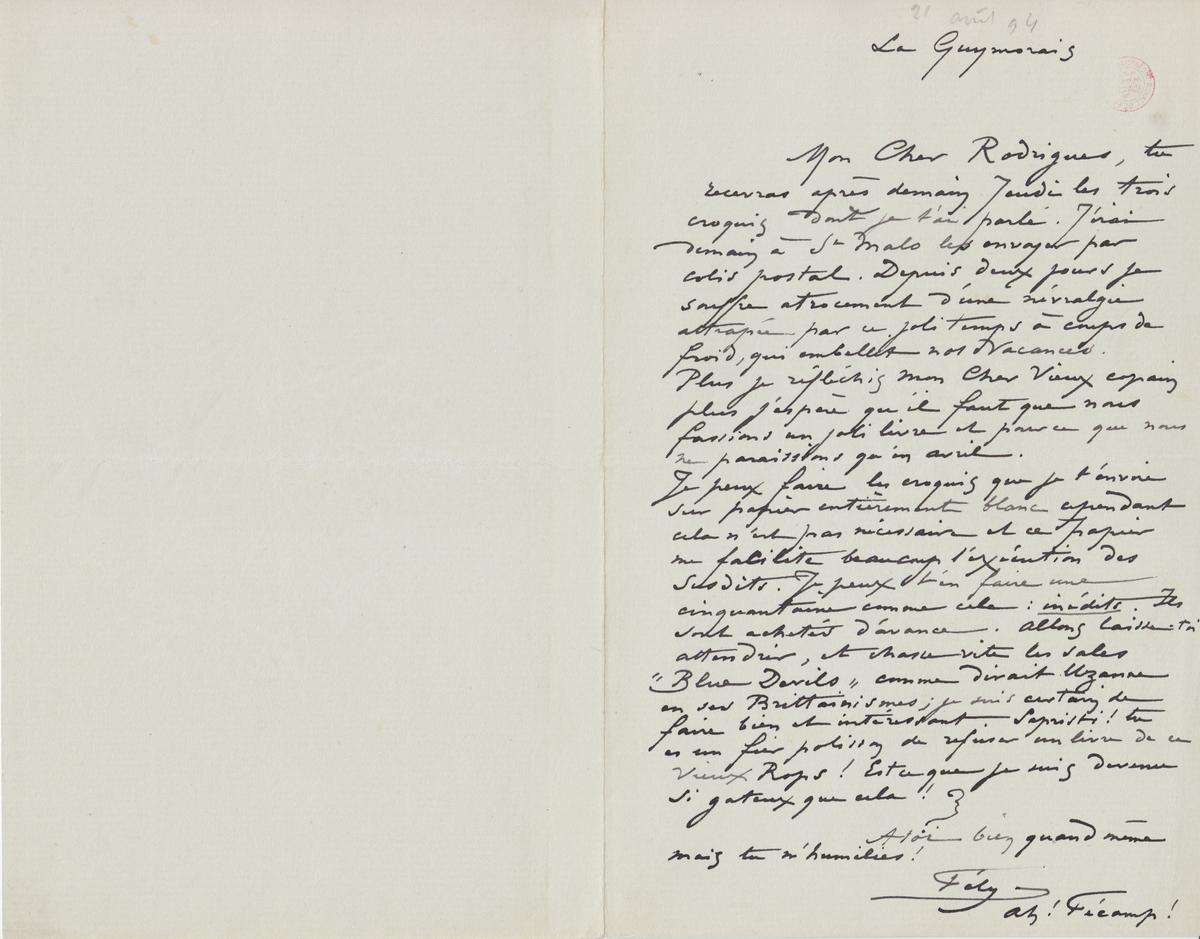 21 avril 94
La Guymorais
Mon Cher Rodrigues, tu
recevras après demain Jeudi les trois
croquis dont je t'ai parlé. J'irai
demain à St Malo les envoyer par
colis postal. Depuis deux jours je
souffre atrocement d'une névralgie
attrapée par ce joli temps à coups de
froid, qui embellit nos Vacances.
Plus je réfléchis mon Cher Vieux copain
plus j'espère qu'il faut que nous
fassions un joli livre et pour ce que nous
ne paraissions qu'en avril.
Je peux faire les croquis que je t'envoie
sur papier entièrement blanc cependant
cela n'est pas nécessaire et ce papier
me facilite beaucoup l'exécution des
susdits. Je peux t'en faire une
cinquantaine comme cela : inédits. Ils
sont achetés d'avance. Allons laisse-toi
attendrir, et chasse vite les sales
"Blue Devils" comme dirait Uzanne
en ses Brittainismes; je suis certain de
faire bien et intéressant Sapristi! tu
es un fier polisson de refuser un livre de ce
Vieux Rops ! Est ce que je suis devenu
si gateux que cela !
A toi bien quand même
mais tu m'humilies !
Fély
Ah ! Fécamp !